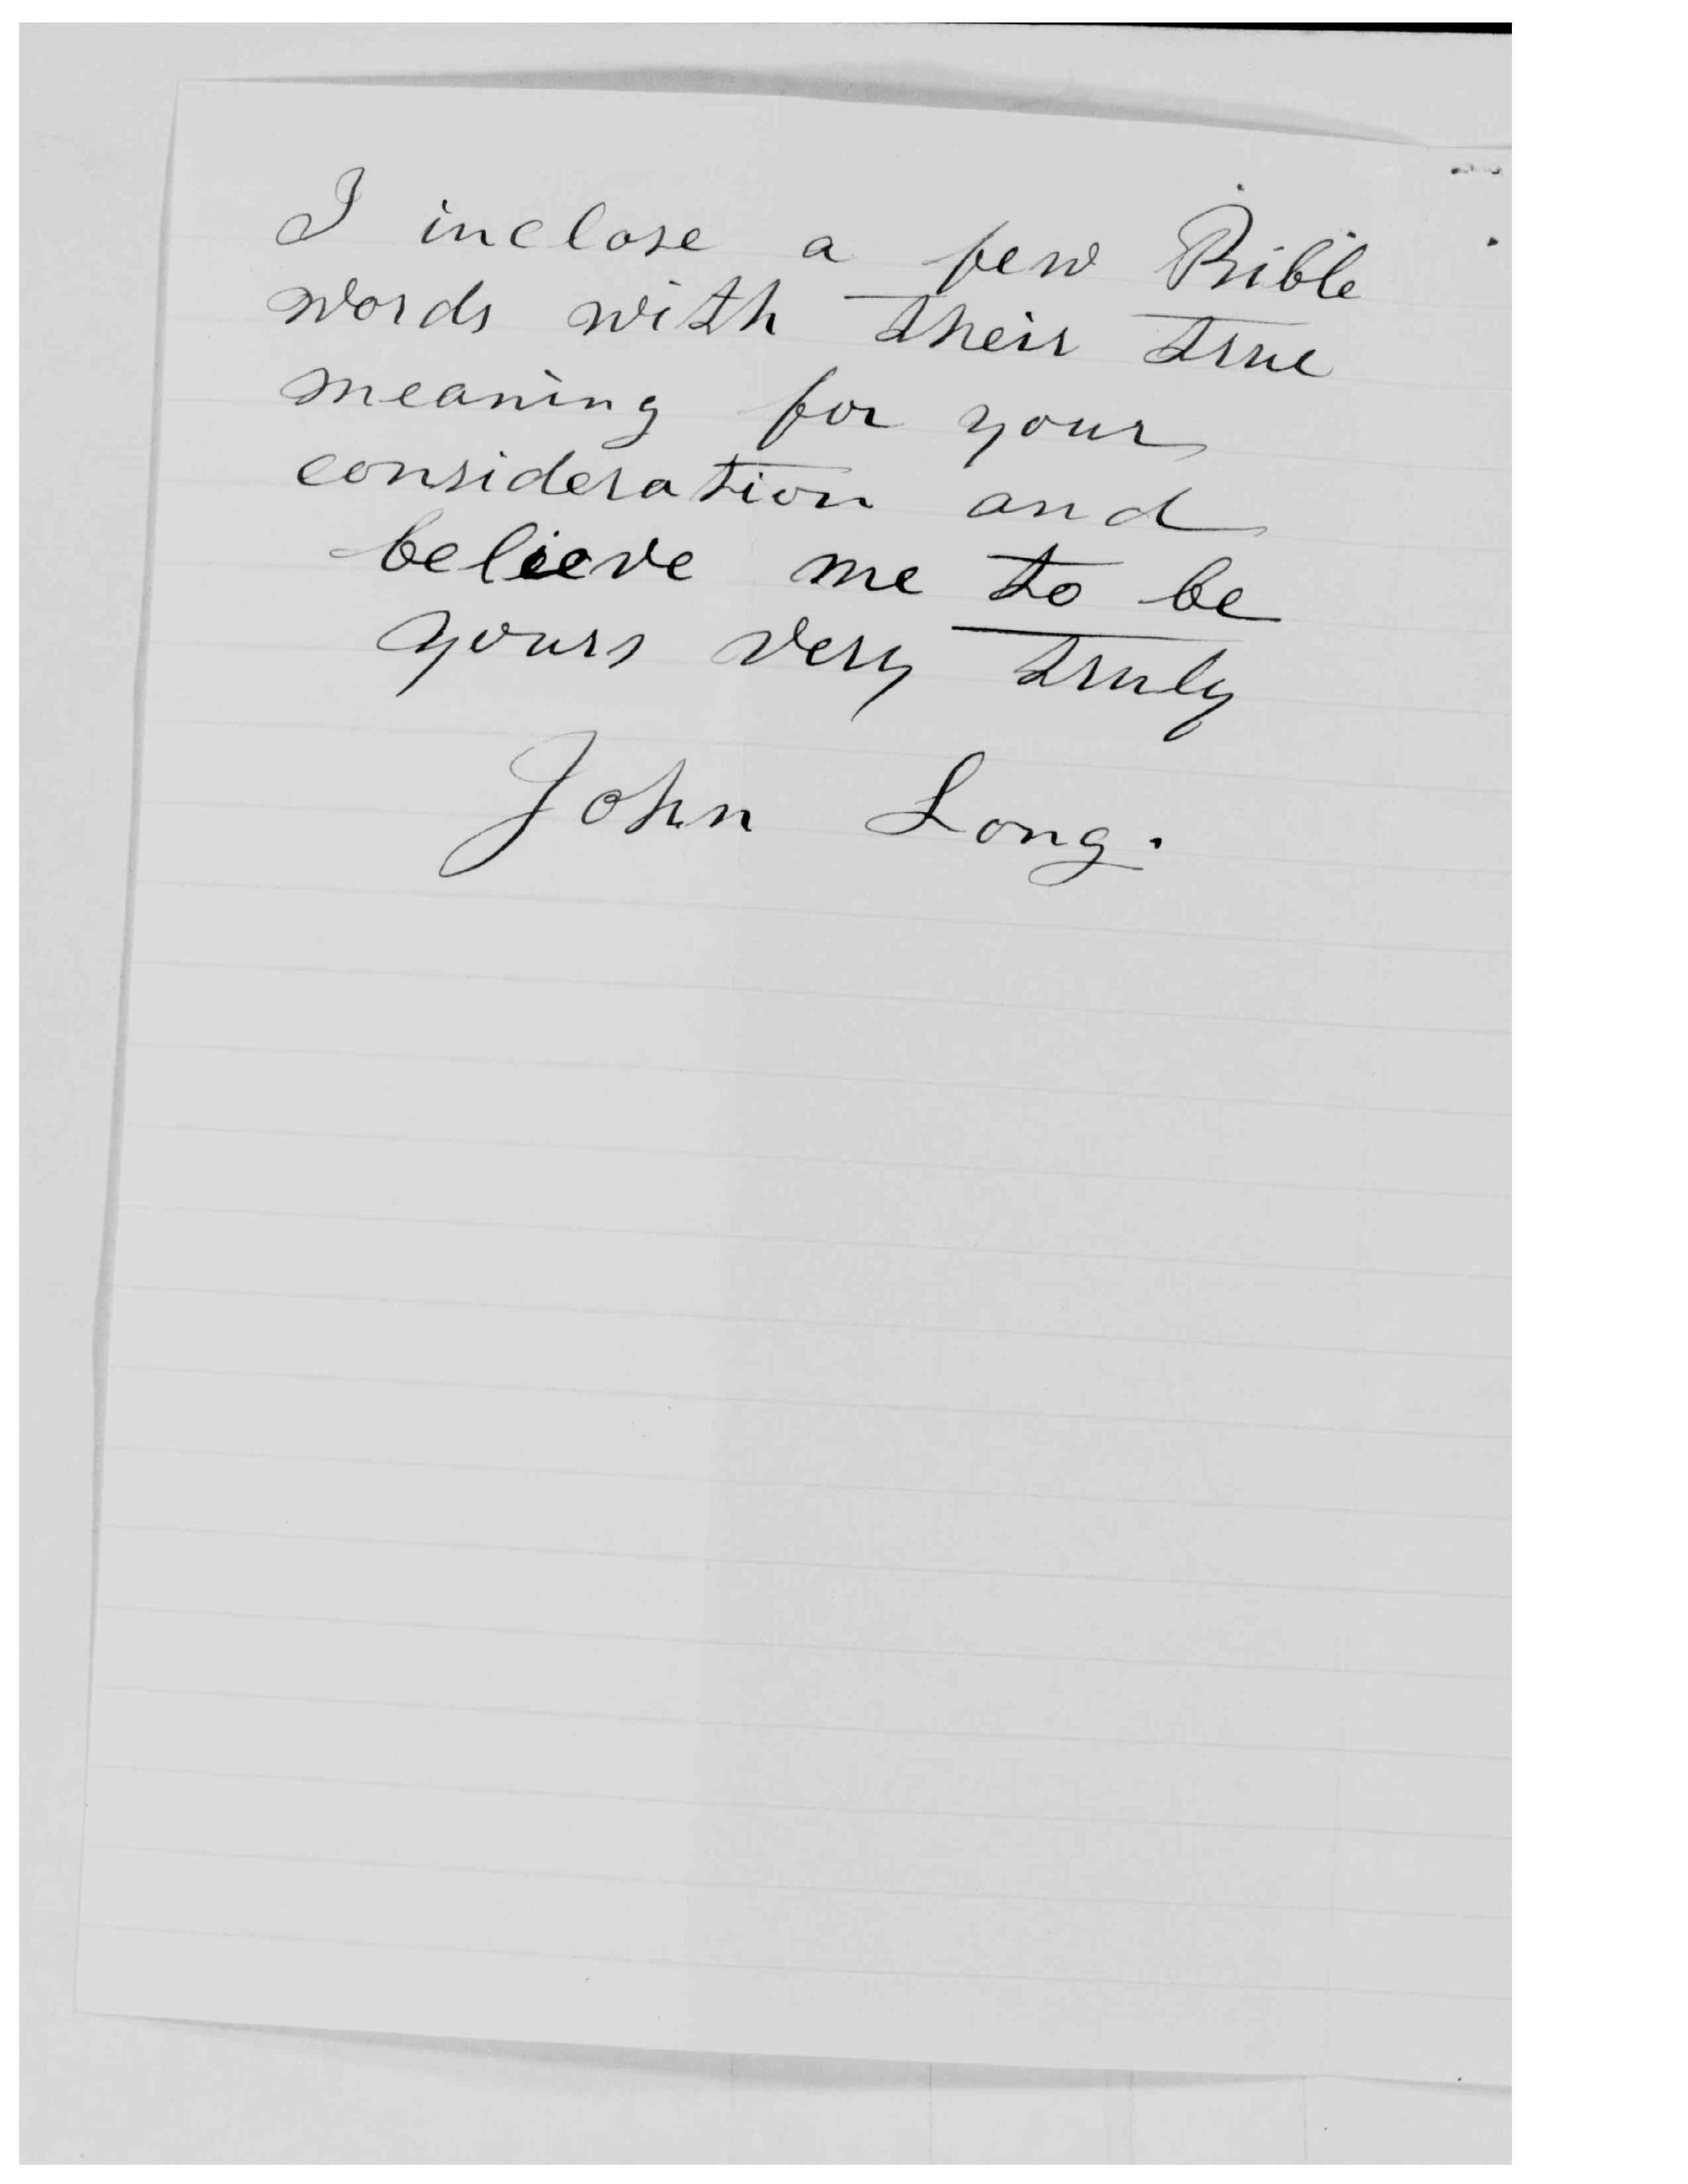 I inclose a few Bible
words with their true
meaning for your
consideration and
believe me to be
yours very truly
John Long.